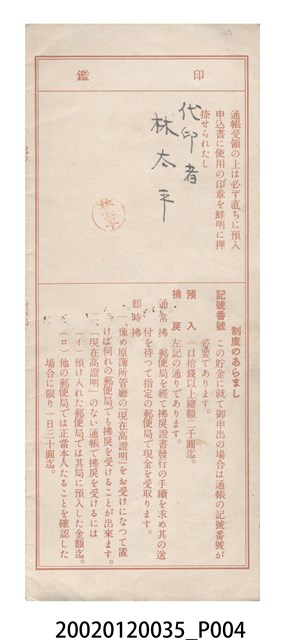 印鑑
通帳受領の上は必ず直ちに預入
申込書に使用の印章を鮮明に押
捺せられたし
代印者
林太平
制度のあらまし
記號番號 この貯金に就て御申出の場合は通帳の記號番號が
必要であります。
預入 一口拾錢以上總額二千圓迄。
拂戻 左記の通りであります。
通常拂 郵便局を經て拂戻證書發行の手續を求め其の送
付を待つて指定の郵便局で現金を受取ります。
即時拂
一、豫め原簿所管廳の「現在高證明」をお受けになつて置
けば何れの郵便局でも拂戻を受けることが出來ます。
二、「現在高證明」のない通帳で拂戻を受けるには
(イ) 預け入れた郵便局では其局に預入した金額迄。
(ロ) 他の郵便局では正當本人たることを確認した
場合に限り一日三十圓迄。
20020120035_P004